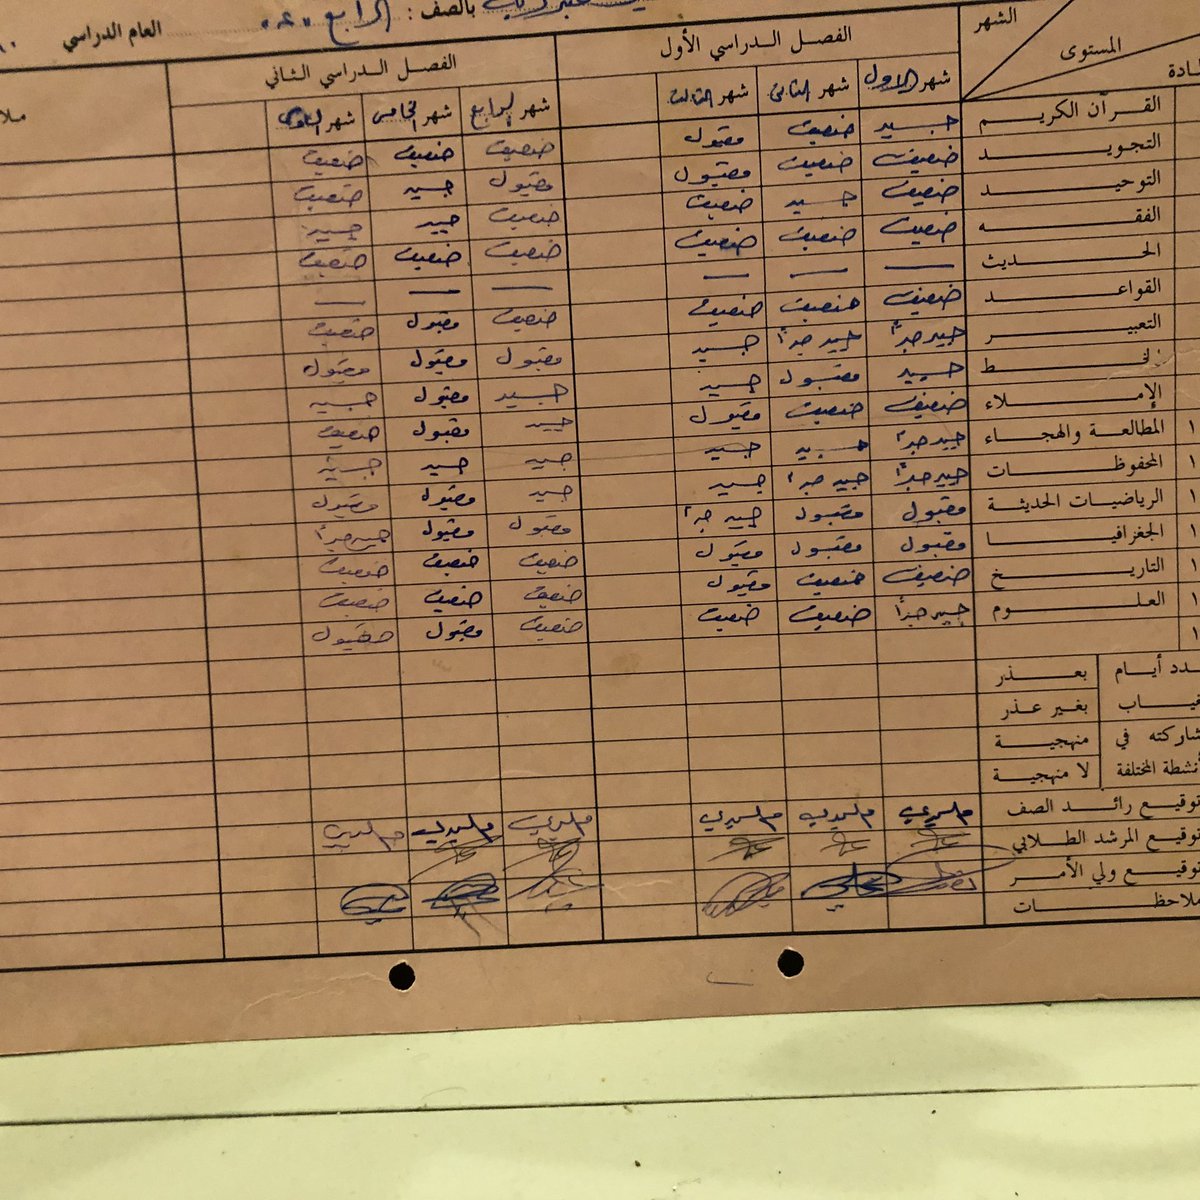 بالصف : الرابع
العام الدراسي
الشهر
المستوى
الفصل الدراسي الأول
الفصل الدراسي الثاني
شهر الاول شهر الثاني شهر الثالث شهر الرابع شهر الخامس شهر السادس
القرآن الكريم جيد ضعيف مقبول ضعيف ضعيف ضعيف
التجويد ضعيف ضعيف مقبول مقبول جيد ضعيف
التوحيد ضعيف جيد ضعيف ضعيف جيد جيد
الفقه ضعيف ضعيف ضعيف ضعيف ضعيف ضعيف
الحديث — — — — — —
القواعد ضعيف ضعيف ضعيف ضعيف مقبول ضعيف
التعبير جيد جداً جيد جداً جيد مقبول مقبول مقبول
الخط جيد مقبول جيد جيد مقبول جيد
الإملاء ضعيف ضعيف مقبول جيد مقبول ضعيف
المطالعة والهجاء جيد جداً جيد جيد جيد جيد جيد
المحفوظات جيد جداً جيد جداً جيد جيد مقبول مقبول
الرياضيات الحديثة مقبول مقبول جيد جداً مقبول مقبول جيد جداً
الجغرافيا مقبول مقبول مقبول ضعيف ضعيف ضعيف
التاريخ ضعيف ضعيف مقبول ضعيف ضعيف ضعيف
العلوم جيد جداً ضعيف ضعيف ضعيف مقبول مقبول
أيام بعذر
بغير عذر
في منهجية
المختلفة لا منهجية
توقيع رائد الصف
توقيع المرشد الطلابي
توقيع ولي الأمر
ملاحظات